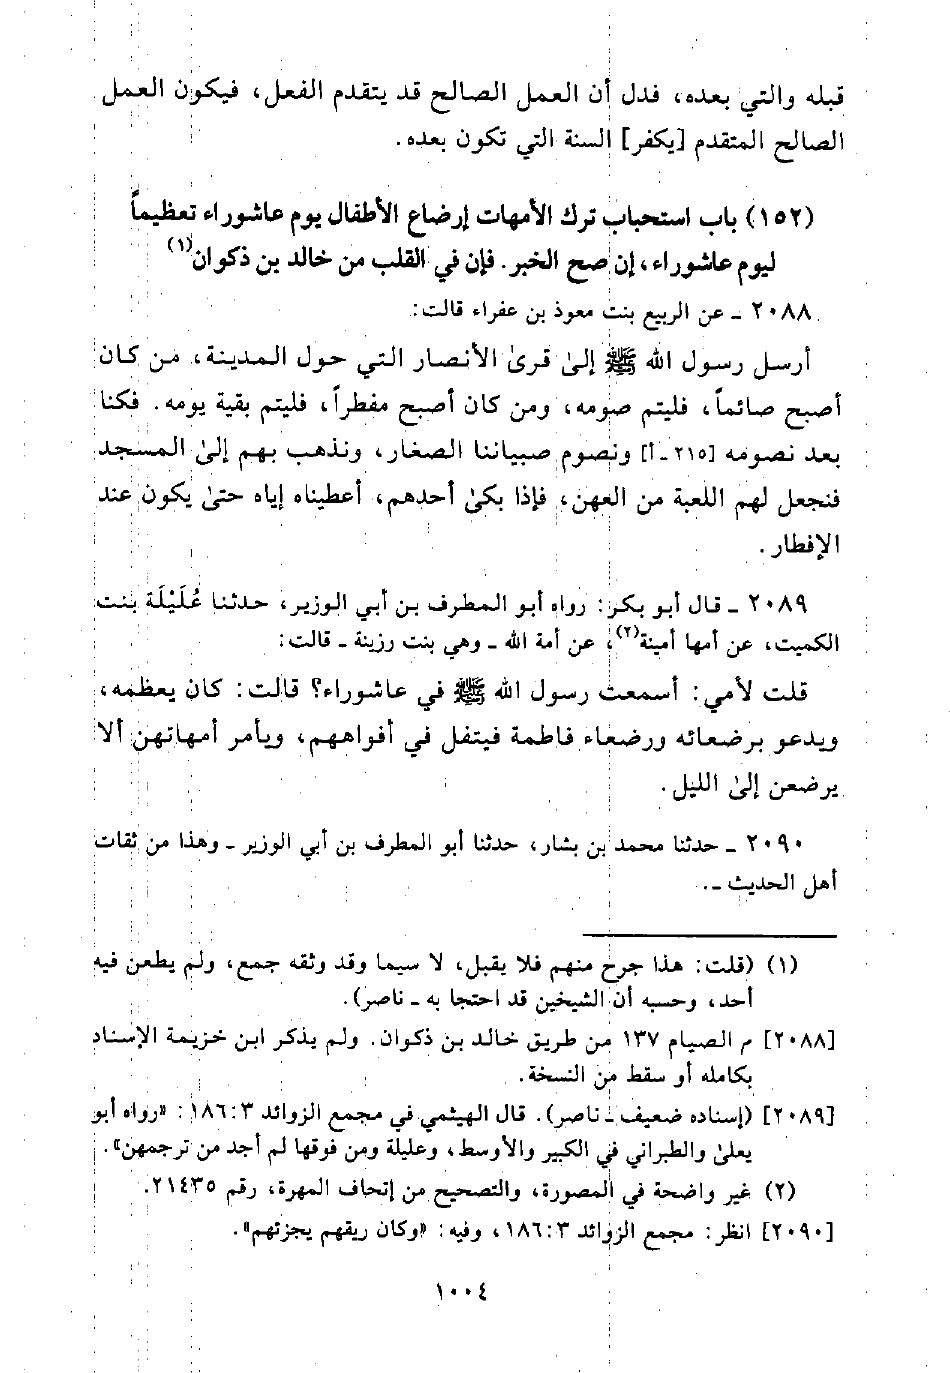 قبله والتي بعده، فدل أن العمل الصالح قد يتقدم الفعل، فيكون العمل
الصالح المتقدم [يكفر] السنة التي تكون بعده.
(١٥٢) باب استحباب ترك الأمهات إرضاع الأطفال يوم عاشوراء تعظيماً
ليوم عاشوراء، إن صح الخبر. فإن في القلب من خالد بن ذكوان(١)
٢٠٨٨ ـ عن الربيع بنت معوذ بن عفراء قالت:
أرسل رسول الله ﷺ إلىٰ قرىٰ الأنصار التي حول المدينة، من كان
أصبح صائماً، فليتم صومه، ومن كان أصبح مفطراً، فليتم بقية يومه. فكنا
بعد نصومه [٢١٥ ـ أ] ونصوم صبياننا الصغار، ونذهب بهم إلىٰ المسجد
فنجعل لهم اللعبة من العهن، فإذا بكىٰ أحدهم، أعطيناه إياه حتىٰ يكون عند
الإفطار.
٢٠٨٩ ـ قال أبو بكر: رواه أبو المطرف بن أبي الوزير، حدثنا عُلَيْلَة بنت
الكميت، عن أمها أمينة(٢)، عن أمة الله ـ وهي بنت رزينة ـ قالت:
قلت لأمي: أسمعت رسول الله ﷺ في عاشوراء؟ قالت: كان يعظمه،
ويدعو برضعائه ورضعاء فاطمة فيتفل في أفواههم، ويأمر أمهاتهن ألا
يرضعن إلىٰ الليل.
٢٠٩٠ ـ حدثنا محمد بن بشار، حدثنا أبو المطرف بن أبي الوزير ـ وهذا من ثقات
أهل الحديث ـ.
(١) (قلت: هذا جرح منهم فلا يقبل، لا سيما وقد وثقه جمع، ولم يطعن فيه
أحد، وحسبه أن الشيخين قد احتجا به ـ ناصر).
[٢٠٨٨] م الصيام ١٣٧ من طريق خالد بن ذكوان. ولم يذكر ابن خزيمة الإسناد
بكامله أو سقط من النسخة.
[٢٠٨٩] (إسناده ضعيف ـ ناصر). قال الهيثمي في مجمع الزوائد ٣:١٨٦: «رواه أبو
يعلىٰ والطبراني في الكبير والأوسط، وعليلة ومن فوقها لم أجد من ترجمهن».
(٢) غير واضحة في المصورة، والتصحيح من إتحاف المهرة، رقم ٢١٤٣٥.
[٢٠٩٠] انظر: مجمع الزوائد ٣:١٨٦، وفيه: «وكان ريقهم يجزئهم».
١٠٠٤